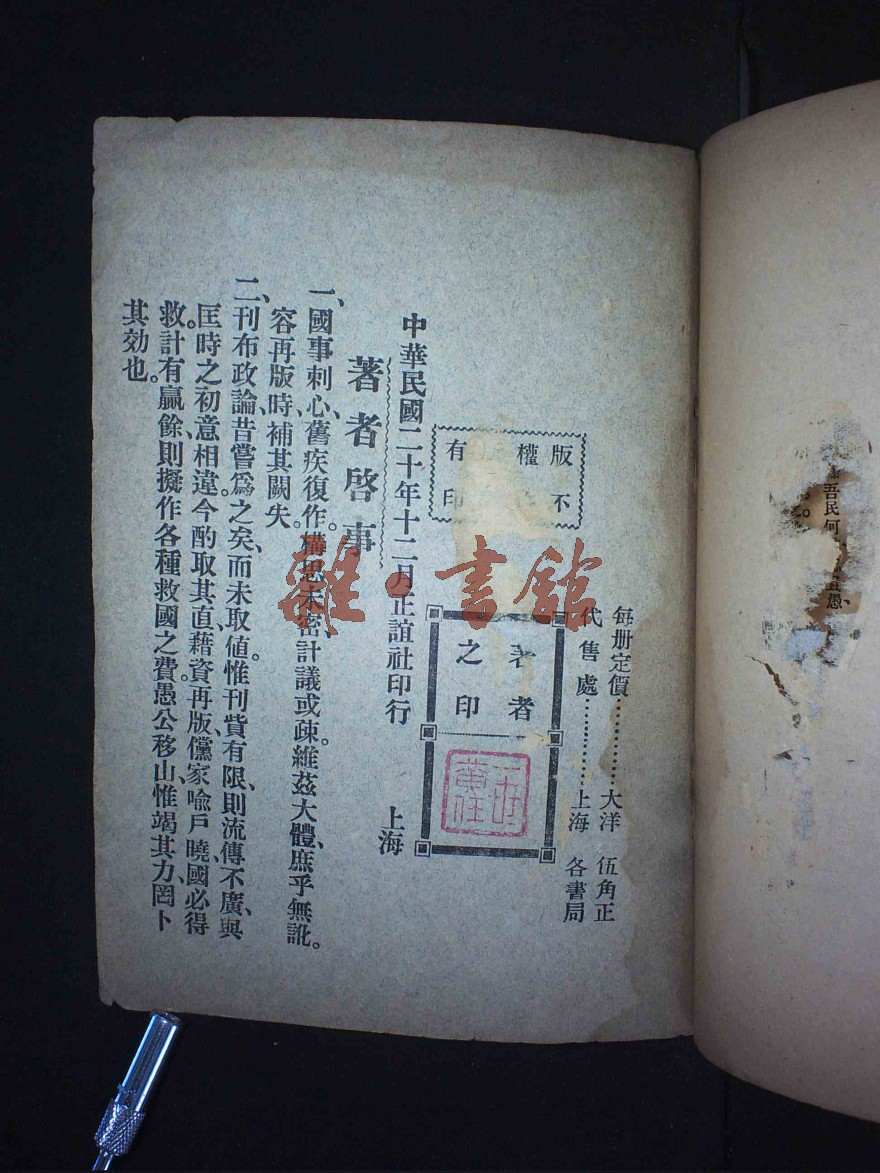 每册定價…………大洋 伍角正
代售處…………上海 各書局
版權有
不印
著者
之印
中華民國二十年十二月正誼社印行 上海
著者啓事
一、國事刺心、舊疾復作。構思未密、計議或疎。維茲大體、庶乎無訛。
容再版時、補其闕失。
二、刊布政論、昔嘗爲之矣、而未取値。惟刊貲有限、則流傳不廣、與
匡時之初意相違。今酌取其直、藉資再版、儻家喻戶曉、國必得
救。計有贏餘、則擬作各種救國之費。愚公移山、惟竭其力、罔卜
其効也。
吾民何
愚、
雜·書館